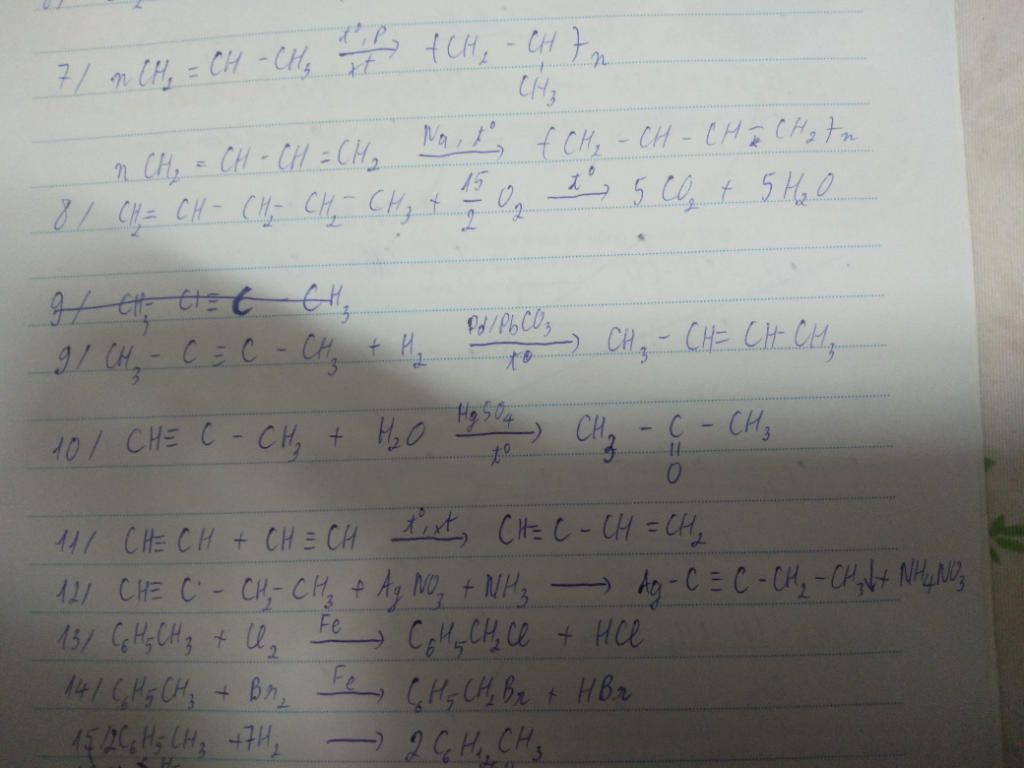 7/ nCH₂ = CH - CH₃ —(t⁰, P / xt)→ (CH₂ - CH)n
CH₃
nCH₂ = CH - CH = CH₂ —(Na, t⁰)→ (CH₂ - CH - CH = CH₂)n
8/ CH₂ = CH - CH₂ - CH₂ - CH₃ + 15/2 O₂ —(t⁰)→ 5CO₂ + 5H₂O
9/ CH₃ CH ≡ C - CH₃
9/ CH₃ - C ≡ C - CH₃ + H₂ —(Pd/PbCO₃ / t⁰)→ CH₃ - CH = CH - CH₃
10/ CH ≡ C - CH₃ + H₂O —(HgSO₄ / t⁰)→ CH₃ - C - CH₃
||
O
11/ CH ≡ CH + CH ≡ CH —(t⁰, xt)→ CH ≡ C - CH = CH₂
12/ CH ≡ C - CH₂ - CH₃ + AgNO₃ + NH₃ → Ag - C ≡ C - CH₂ - CH₃↓ + NH₄NO₃
13/ C₆H₅CH₃ + Cl₂ —(Fe)→ C₆H₅CH₂Cl + HCl
14/ C₆H₅CH₃ + Br₂ —(Fe)→ C₆H₅CH₂Br + HBr
15/ 2C₆H₅CH₃ + 7H₂ → 2C₆H₁₂CH₃